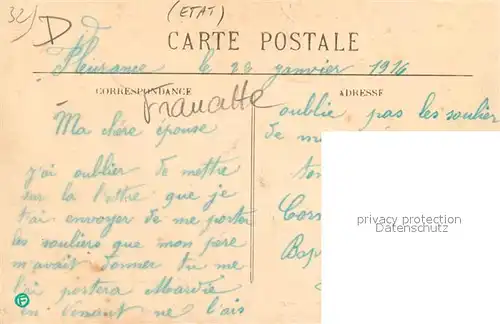 32/
D
(ETAT)
CARTE POSTALE
Fleurance le 28 janvier 1916
CORRESPONDANCE
ADRESSE
Ma chère épouse
j'ai oublier de mettre
sur la lettre que je
t'ai envoyer de me porter
les souliers que mon père
m'avait donner tu me
l'ai portera Mardie
en venant ne l'ais
oublie pas les soulier
de
privacy protection
Datenschutz